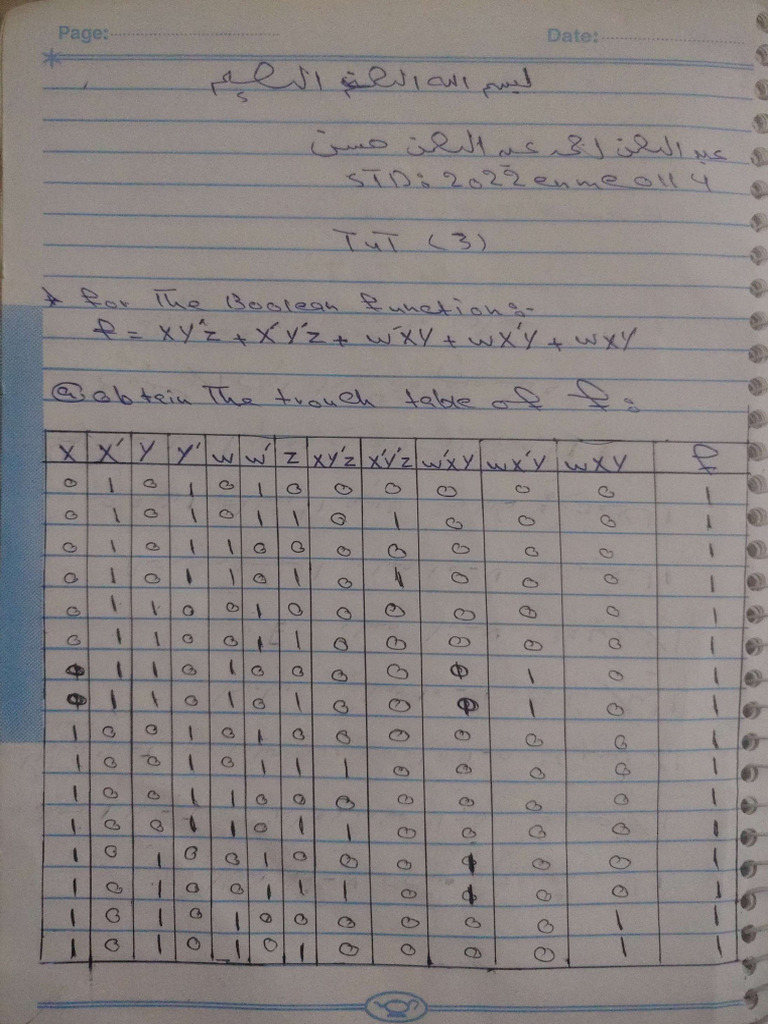 Page:
Date:
بسم الله الرحمن الرحيم
عبد الرحمن عبد الرحمن حسن
STD: 2022 enme 0114
TUT (3)
* for The Boolean function:-
f = XY'Z + X'Y'Z + W'XY + WX'Y + WXY
(a) obtain The trouth table of f:
X X' Y Y' W W' Z XY'Z X'Y'Z W'XY WX'Y WXY f
0 1 0 1 0 1 0 0 0 0 0 0 1
0 1 0 1 0 1 1 0 1 0 0 0 1
0 1 0 1 1 0 0 0 0 0 0 0 1
0 1 0 1 1 0 1 0 1 0 0 0 1
0 1 1 0 0 1 0 0 0 0 0 0 1
0 1 1 0 0 1 1 0 0 0 0 0 1
0 1 1 0 1 0 0 0 0 0 1 0 1
0 1 1 0 1 0 1 0 0 0 1 0 1
1 0 0 1 0 1 0 0 0 0 0 0 1
1 0 0 1 0 1 1 1 0 0 0 0 1
1 0 0 1 1 0 0 0 0 0 0 0 1
1 0 0 1 1 0 1 1 0 0 0 0 1
1 0 1 0 0 1 0 0 0 1 0 0 1
1 0 1 0 0 1 1 1 0 1 0 0 1
1 0 1 0 1 0 0 0 0 0 0 1 1
1 0 1 0 1 0 1 0 0 0 0 1 1